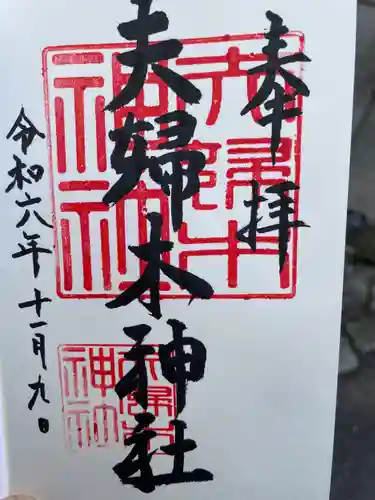 奉拝
夫婦木神社
令和六年十一月九日
夫婦木神社